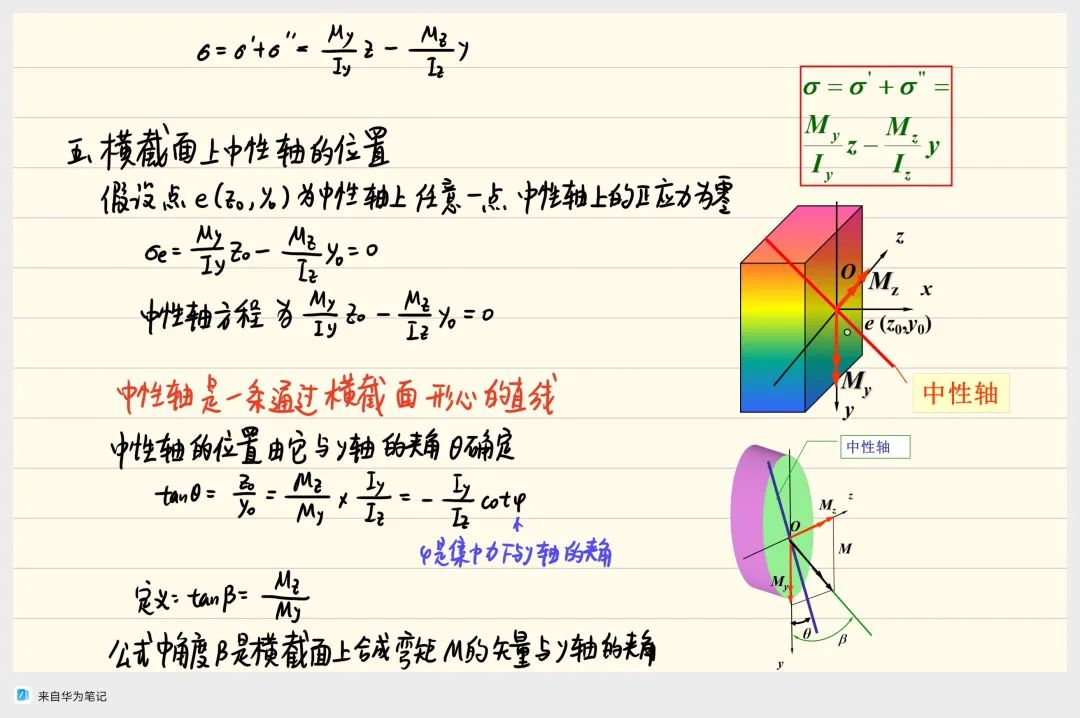 σ = σ' + σ'' = My/Iy z − Mz/Iz y
五、横截面上中性轴的位置
假设点 e(z₀, y₀) 为中性轴上任意一点 中性轴上的正应力为零
σe = My/Iy z₀ − Mz/Iz y₀ = 0
中性轴方程为 My/Iy z₀ − Mz/Iz y₀ = 0
中性轴是一条通过横截面形心的直线
中性轴的位置由它与y轴的夹角θ确定
tanθ = z₀/y₀ = Mz/My × Iy/Iz = − Iy/Iz cotφ
φ是集中力F与y轴的夹角
定义: tanβ = Mz/My
公式中角度β是横截面上合成弯矩M的矢量与y轴的夹角
σ = σ' + σ'' =
My/Iy z − Mz/Iz y
z
O
Mz
x
e (z₀,y₀)
My
y
中性轴
中性轴
z
Mz
O
M
My
θ
β
y
来自华为笔记